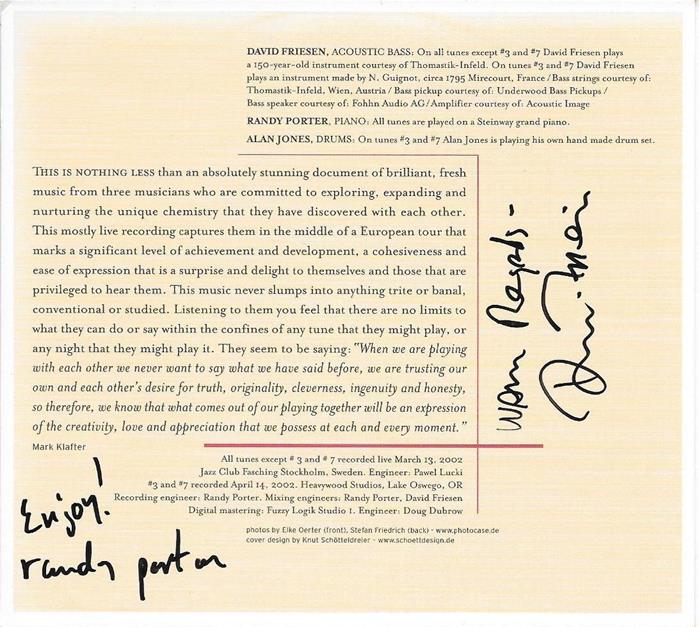 DAVID FRIESEN, ACOUSTIC BASS: On all tunes except #3 and #7 David Friesen plays
a 150-year-old instrument courtesy of Thomastik-Infeld. On tunes #3 and #7 David Friesen
plays an instrument made by N. Guignot, circa 1795 Mirecourt, France / Bass strings courtesy of:
Thomastik-Infeld, Wien, Austria / Bass pickup courtesy of: Underwood Bass Pickups /
Bass speaker courtesy of: Fohhn Audio AG / Amplifier courtesy of: Acoustic Image
RANDY PORTER, PIANO: All tunes are played on a Steinway grand piano.
ALAN JONES, DRUMS: On tunes #3 and #7 Alan Jones is playing his own hand made drum set.
THIS IS NOTHING LESS than an absolutely stunning document of brilliant, fresh
music from three musicians who are committed to exploring, expanding and
nurturing the unique chemistry that they have discovered with each other.
This mostly live recording captures them in the middle of a European tour that
marks a significant level of achievement and development, a cohesiveness and
ease of expression that is a surprise and delight to themselves and those that are
privileged to hear them. This music never slumps into anything trite or banal,
conventional or studied. Listening to them you feel that there are no limits to
what they can do or say within the confines of any tune that they might play, or
any night that they might play it. They seem to be saying: "When we are playing
with each other we never want to say what we have said before, we are trusting our
own and each other's desire for truth, originality, cleverness, ingenuity and honesty,
so therefore, we know that what comes out of our playing together will be an expression
of the creativity, love and appreciation that we possess at each and every moment."
Mark Klafter
Warm Regards -
All tunes except # 3 and # 7 recorded live March 13, 2002
Jazz Club Fasching Stockholm, Sweden. Engineer: Pawel Lucki
#3 and #7 recorded April 14, 2002. Heavywood Studios, Lake Oswego, OR
Recording engineer: Randy Porter. Mixing engineers: Randy Porter, David Friesen
Digital mastering: Fuzzy Logik Studio 1. Engineer: Doug Dubrow
photos by Elke Oerter (front), Stefan Friedrich (back) - www.photocase.de
cover design by Knut Schötteldreier - www.schoettdesign.de
Enjoy!
randy porter